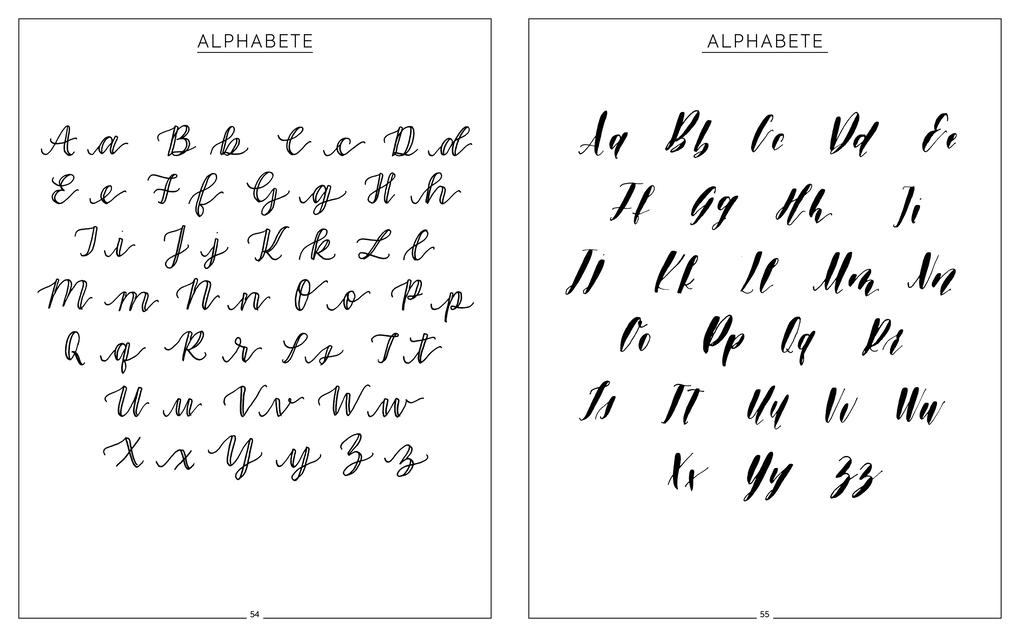 ALPHABETE
A a B b C c D d
E e F f G g H h
I i J j K k L l
M m N n O o P p
Q q R r S s T t
U u V v W w
X x Y y Z z
54
ALPHABETE
Aa Bb Cc Dd Ee
Ff Gg Hh Ii
Jj Kk Ll Mm Nn
Oo Pp Qq Rr
Ss Tt Uu Vv Ww
Xx Yy Zz
55